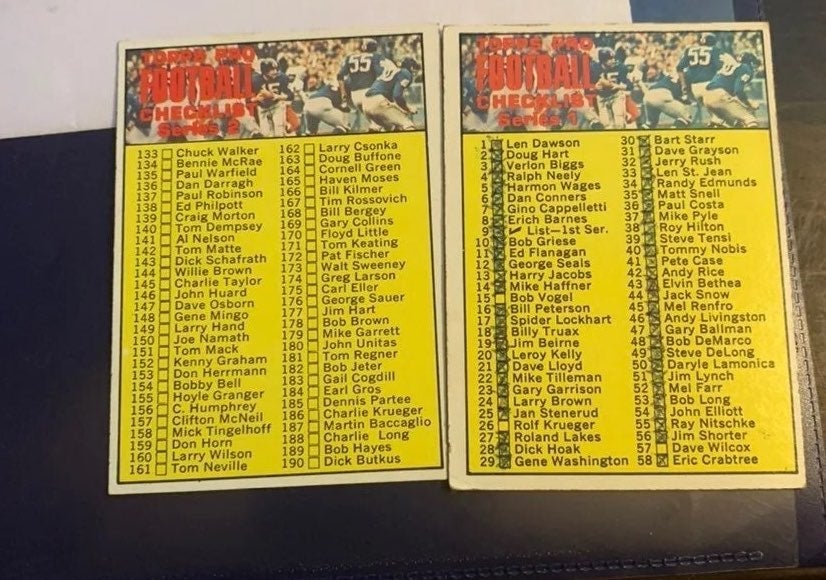 TOPPS PRO
FOOTBALL
CHECKLIST
Series 2
133 Chuck Walker
134 Bennie McRae
135 Paul Warfield
136 Dan Darragh
137 Paul Robinson
138 Ed Philpott
139 Craig Morton
140 Tom Dempsey
141 Al Nelson
142 Tom Matte
143 Dick Schafrath
144 Willie Brown
145 Charlie Taylor
146 John Huard
147 Dave Osborn
148 Gene Mingo
149 Larry Hand
150 Joe Namath
151 Tom Mack
152 Kenny Graham
153 Don Herrmann
154 Bobby Bell
155 Hoyle Granger
156 C. Humphrey
157 Clifton McNeil
158 Mick Tingelhoff
159 Don Horn
160 Larry Wilson
161 Tom Neville
162 Larry Csonka
163 Doug Buffone
164 Cornell Green
165 Haven Moses
166 Bill Kilmer
167 Tim Rossovich
168 Bill Bergey
169 Gary Collins
170 Floyd Little
171 Tom Keating
172 Pat Fischer
173 Walt Sweeney
174 Greg Larson
175 Carl Eller
176 George Sauer
177 Jim Hart
178 Bob Brown
179 Mike Garrett
180 John Unitas
181 Tom Regner
182 Bob Jeter
183 Gail Cogdill
184 Earl Gros
185 Dennis Partee
186 Charlie Krueger
187 Martin Baccaglio
188 Charlie Long
189 Bob Hayes
190 Dick Butkus
TOPPS PRO
FOOTBALL
CHECKLIST
Series 1
1 Len Dawson
2 Doug Hart
3 Verlon Biggs
4 Ralph Neely
5 Harmon Wages
6 Dan Conners
7 Gino Cappelletti
8 Erich Barnes
9 List—1st Ser.
10 Bob Griese
11 Ed Flanagan
12 George Seals
13 Harry Jacobs
14 Mike Haffner
15 Bob Vogel
16 Bill Peterson
17 Spider Lockhart
18 Billy Truax
19 Jim Beirne
20 Leroy Kelly
21 Dave Lloyd
22 Mike Tilleman
23 Gary Garrison
24 Larry Brown
25 Jan Stenerud
26 Rolf Krueger
27 Roland Lakes
28 Dick Hoak
29 Gene Washington
30 Bart Starr
31 Dave Grayson
32 Jerry Rush
33 Len St. Jean
34 Randy Edmunds
35 Matt Snell
36 Paul Costa
37 Mike Pyle
38 Roy Hilton
39 Steve Tensi
40 Tommy Nobis
41 Pete Case
42 Andy Rice
43 Elvin Bethea
44 Jack Snow
45 Mel Renfro
46 Andy Livingston
47 Gary Ballman
48 Bob DeMarco
49 Steve DeLong
50 Daryle Lamonica
51 Jim Lynch
52 Mel Farr
53 Bob Long
54 John Elliott
55 Ray Nitschke
56 Jim Shorter
57 Dave Wilcox
58 Eric Crabtree